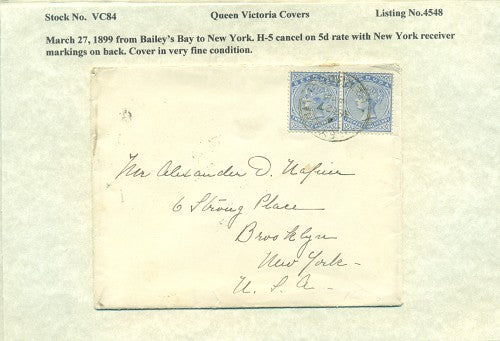 Stock No. VC84 Queen Victoria Covers Listing No.4548
March 27, 1899 from Bailey's Bay to New York. H-5 cancel on 5d rate with New York receiver
markings on back. Cover in very fine condition.
Mr Alexander D. Napier
6 Strong Place
Brooklyn
New York-
U. S. A-